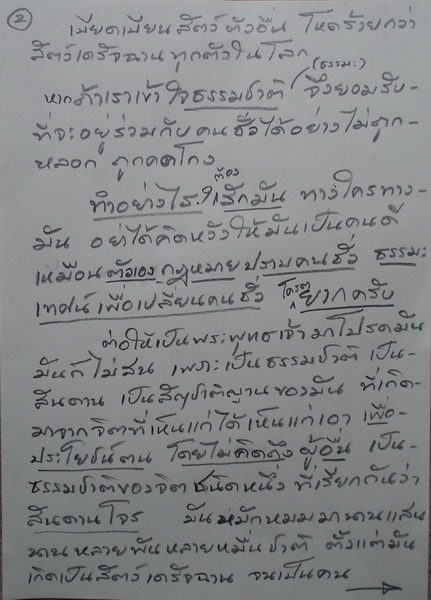 ②
เบียดเบียนสัตว์ตัวอื่น โหดร้ายกว่า
สัตว์เดรัจฉานทุกตัวในโลก
(ธรรมะ)
หากถ้าเราเข้าใจธรรมชาติ จึงยอมรับ-
ที่จะอยู่ร่วมกับคนชั่วได้อย่างไม่ถูก-
หลอก ถูกคดโกง
ต้อง
ทำอย่างไร ใ มัน ทางใครทาง-
มัน อย่าได้คิดหวังให้มันเป็นคนดี
เหมือนตัวเอง กฎหมายปราบคนชั่ว ธรรมะ
เทศน์เพื่อเปลี่ยนคนชั่ว โคตร ยากครับ
ต่อให้เป็นพระพุทธเจ้ามาโปรดมัน
มันก็ไม่สน เพราะเป็นธรรมชาติ เป็น-
สันดาน เป็นสัญชาติญานของมัน ที่เกิด-
มาจากจิตที่เห็นแก่ได้เห็นแก่เอา เพื่อ-
ประโยชน์ตน โดยไม่คิดถึงผู้อื่น เป็น-
ธรรมชาติของจิตชนิดหนึ่ง ที่เรียกกันว่า
สันดานโจร มันหมักหมมมานานแสน
นานหลายพันหลายหมื่นชาติ ตั้งแต่มัน
เกิดเป็นสัตว์เดรัจฉาน จนเป็นคน